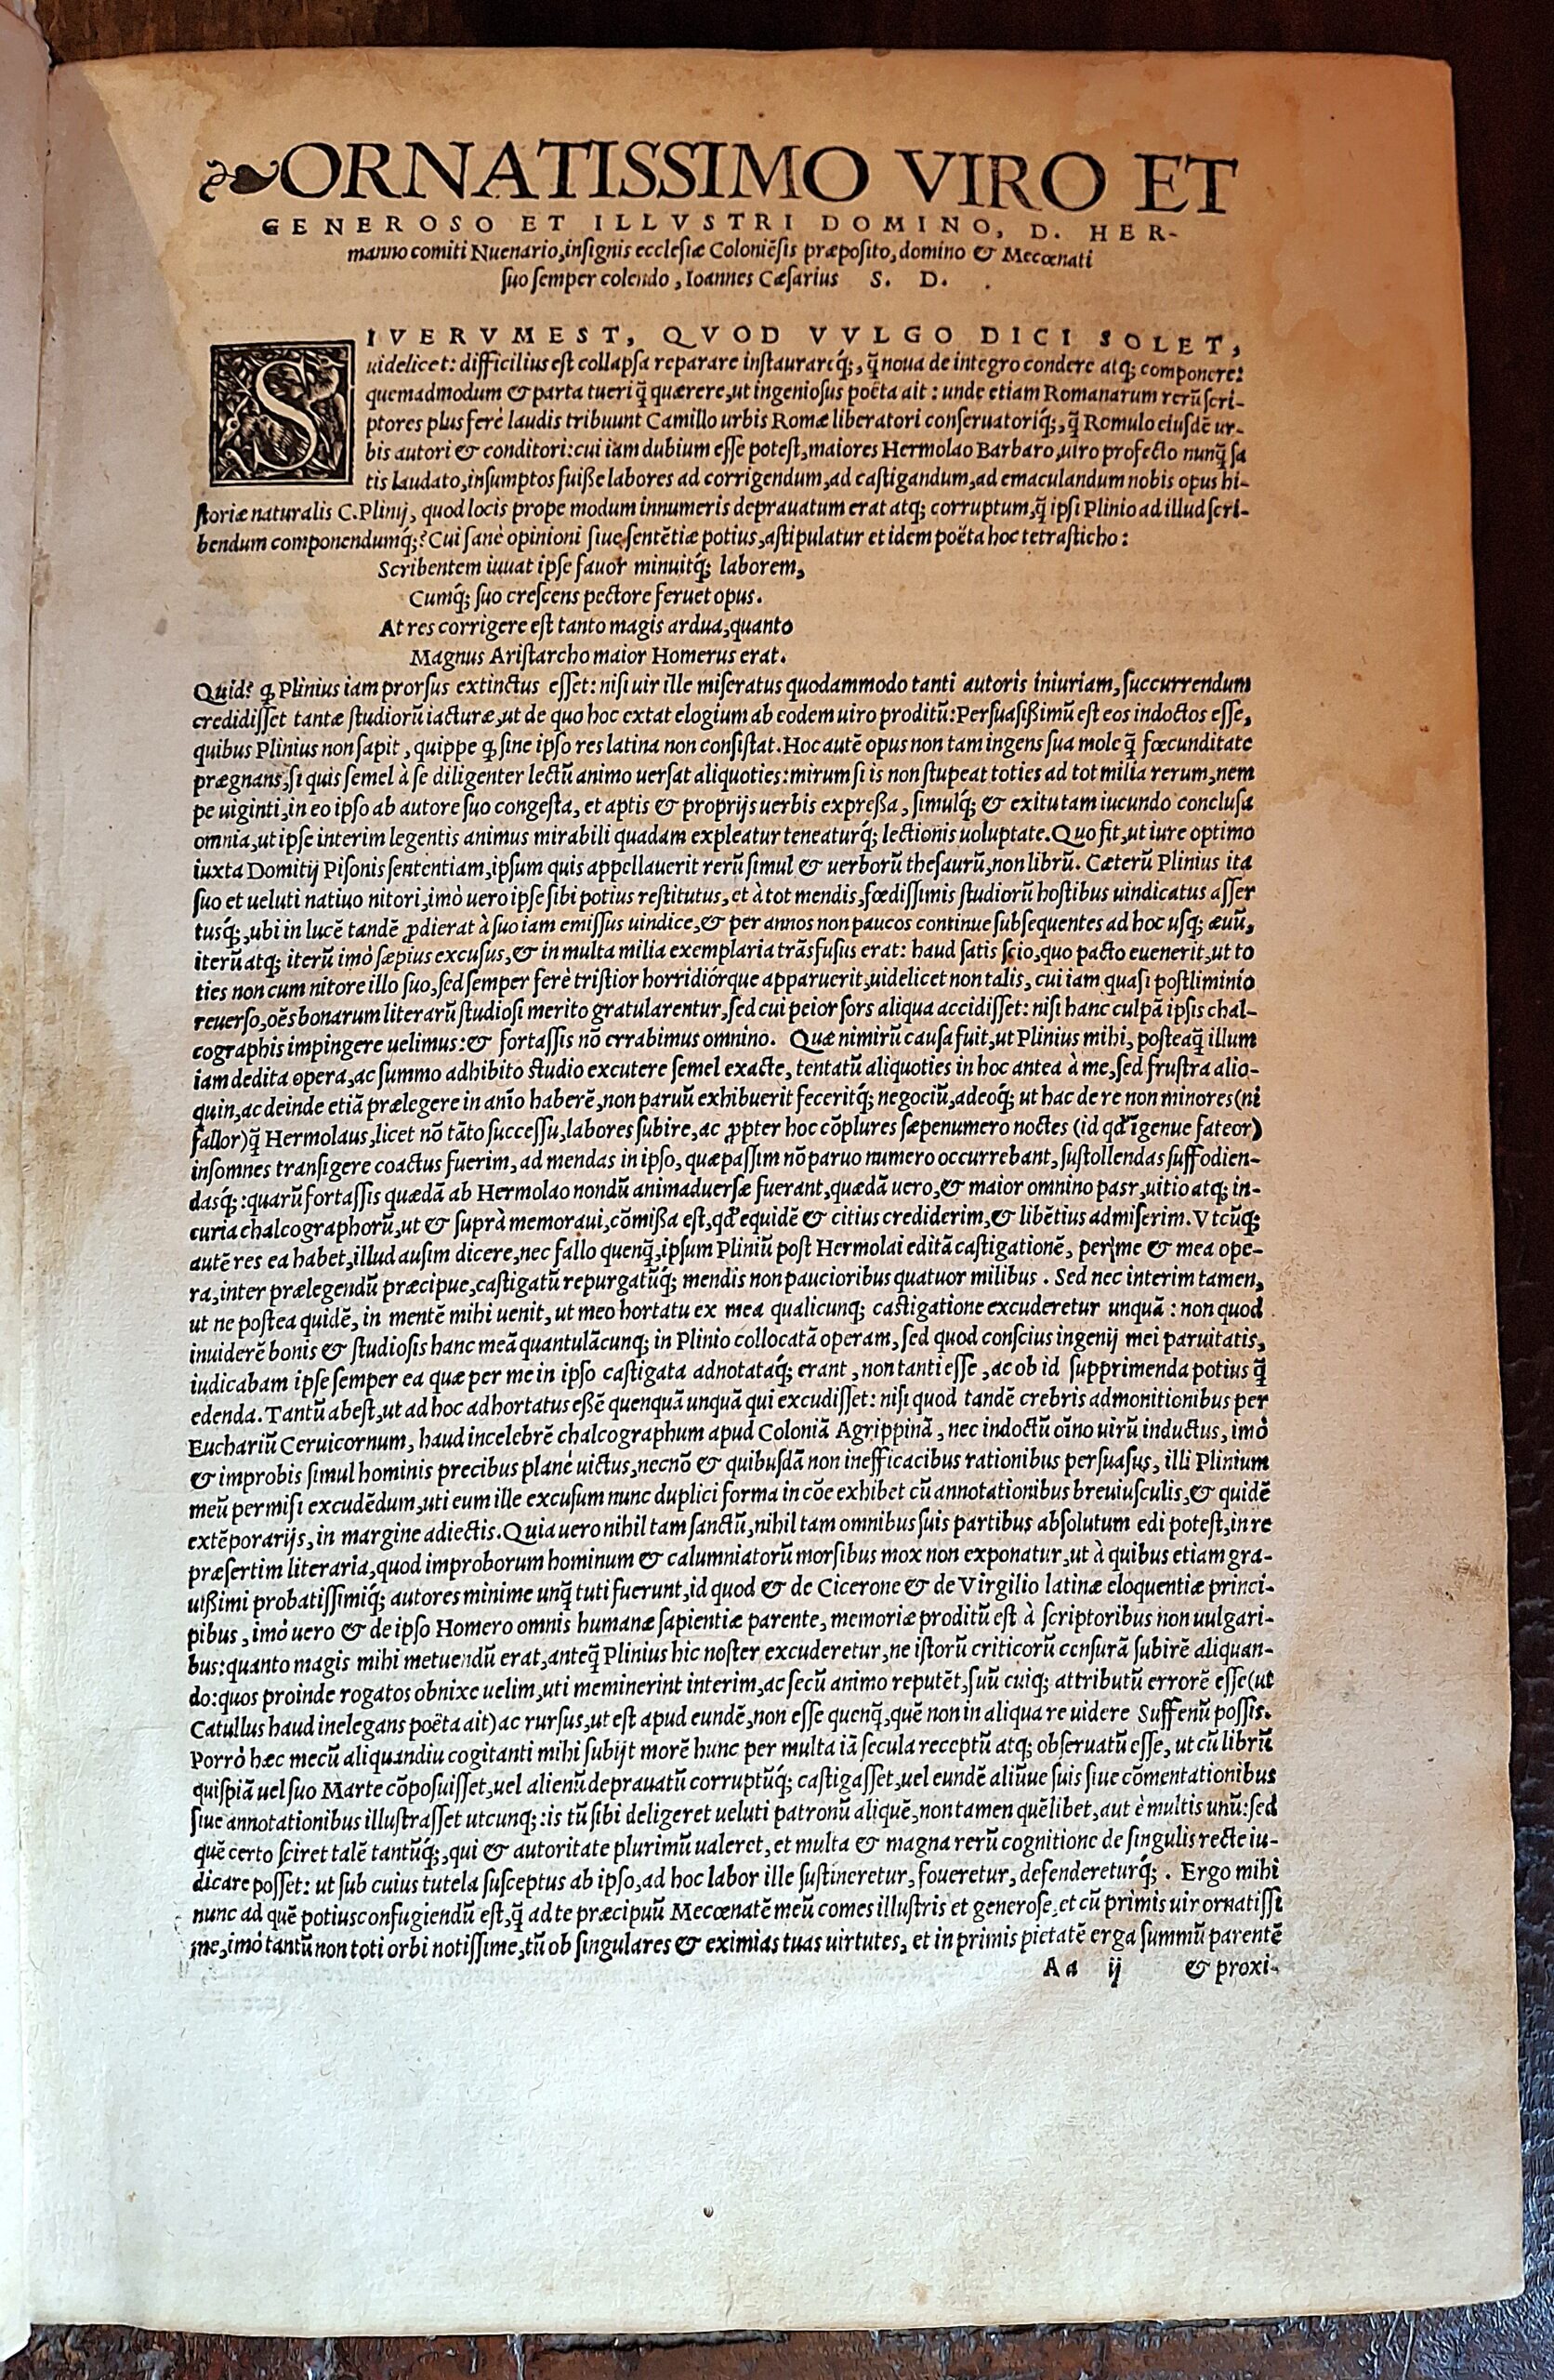 ORNATISSIMO VIRO ET
GENEROSO ET ILLVSTRI DOMINO, D. HER-
manno comiti Nuenario, insignis ecclesiæ Coloniẽsis præposito, domino & Mecœnati
suo semper colendo, Ioannes Cæsarius S. D.
SI VERVM EST, QVOD VVLGO DICI SOLET,
uidelicet: difficilius est collapsa reparare instaurareq́;, q̃ noua de integro condere atq; componere:
quemadmodum & parta tueri q̃ quærere, ut ingeniosus poëta ait: unde etiam Romanarum rerũ scri-
ptores plus ferè laudis tribuunt Camillo urbis Romæ liberatori conseruatoriq́;, q̃ Romulo eiusdẽ ur-
bis autori & conditori: cui iam dubium esse potest, maiores Hermolao Barbaro, uiro profecto nunq̃ sa
tis laudato, insumptos fuiße labores ad corrigendum, ad castigandum, ad emaculandum nobis opus hi-
storiæ naturalis C. Plinij, quod locis prope modum innumeris deprauatum erat atq; corruptum, q̃ ipsi Plinio ad illud scri-
bendum componendumq́;? Cui sanè opinioni siue sentẽtiæ potius, astipulatur et idem poëta hoc tetrasticho:
Scribentem iuuat ipse fauor minuitq́; laborem,
Cumq́; suo crescens pectore feruet opus.
At res corrigere est tanto magis ardua, quanto
Magnus Aristarcho maior Homerus erat.
Quid? ꝙ Plinius iam prorsus extinctus esset: nisi uir ille miseratus quodammodo tanti autoris iniuriam, succurrendum
credidisset tantæ studiorũ iacturæ, ut de quo hoc extat elogium ab eodem uiro proditũ: Persuasißimũ est eos indoctos esse,
quibus Plinius non sapit, quippe ꝙ sine ipso res latina non consistat. Hoc autẽ opus non tam ingens sua mole q̃ fœcunditate
prægnans, si quis semel à se diligenter lectũ animo uersat aliquoties: mirum si is non stupeat toties ad tot milia rerum, nem
pe uiginti, in eo ipso ab autore suo congesta, et aptis & proprijs uerbis expreßa, simulq́; & exitu tam iucundo conclusa
omnia, ut ipse interim legentis animus mirabili quadam expleatur teneaturq́; lectionis uoluptate. Quo fit, ut iure optimo
iuxta Domitij Pisonis sententiam, ipsum quis appellauerit rerũ simul & uerborũ thesaurũ, non librũ. Cæterũ Plinius ita
suo et ueluti natiuo nitori, imò uero ipse sibi potius restitutus, et à tot mendis, fœdissimis studiorũ hostibus uindicatus asser
tusq́;, ubi in lucẽ tandẽ ꝓdierat à suo iam emissus uindice, & per annos non paucos continue subsequentes ad hoc usq; æuũ,
iterũ atq; iterũ imò sæpius excusus, & in multa milia exemplaria trãsfusus erat: haud satis scio, quo pacto euenerit, ut to
ties non cum nitore illo suo, sed semper ferè tristior horridiórque apparuerit, uidelicet non talis, cui iam quasi postliminio
reuerso, oẽs bonarum literarũ studiosi merito gratularentur, sed cui peior sors aliqua accidisset: nisi hanc culpã ipsis chal-
cographis impingere uelimus: & fortassis nõ errabimus omnino. Quæ nimirũ causa fuit, ut Plinius mihi, posteaq̃ illum
iam dedita opera, ac summo adhibito studio excutere semel exacte, tentatũ aliquoties in hoc antea à me, sed frustra alio-
quin, ac deinde etiã prælegere in aĩo haberẽ, non paruũ exhibuerit feceritq́; negociũ, adeoq́; ut hac de re non minores (ni
fallor) q̃ Hermolaus, licet nõ tãto successu, labores subire, ac ꝓpter hoc cõplures sæpenumero noctes (id qđ ĩgenue fateor)
insomnes transigere coactus fuerim, ad mendas in ipso, quæ passim nõ paruo numero occurrebant, sustollendas suffodien-
dasq́;: quarũ fortassis quædã ab Hermolao nondũ animaduersæ fuerant, quædã uero, & maior omnino pasr, uitio atq; in-
curia chalcographorũ, ut & suprà memoraui, cõmißa est, qđ equidẽ & citius crediderim, & libẽtius admiserim. Vtcũq;
autẽ res ea habet, illud ausim dicere, nec fallo quenq̃, ipsum Pliniũ post Hermolai editã castigationẽ, per me & mea ope-
ra, inter prælegendũ præcipue, castigatũ repurgatũq́; mendis non paucioribus quatuor milibus. Sed nec interim tamen,
ut ne postea quidẽ, in mentẽ mihi uenit, ut meo hortatu ex mea qualicunq; castigatione excuderetur unquã: non quod
inuiderẽ bonis & studiosis hanc meã quantulãcunq; in Plinio collocatã operam, sed quod conscius ingenij mei paruitatis,
iudicabam ipse semper ea quæ per me in ipso castigata adnotataq́; erant, non tanti esse, ac ob id supprimenda potius q̃
edenda. Tantũ abest, ut ad hoc adhortatus eßẽ quenquã unquã qui excudisset: nisi quod tandẽ crebris admonitionibus per
Euchariũ Ceruicornum, haud incelebrẽ chalcographum apud Coloniã Agrippinã, nec indoctũ oĩno uirũ inductus, imò
& improbis simul hominis precibus planè uictus, necnõ & quibusdã non inefficacibus rationibus persuasus, illi Plinium
meũ permisi excudẽdum, uti eum ille excusum nunc duplici forma in cõe exhibet cũ annotationibus breuiusculis, & quidẽ
extẽporarijs, in margine adiectis. Quia uero nihil tam sanctũ, nihil tam omnibus suis partibus absolutum edi potest, in re
præsertim literaria, quod improborum hominum & calumniatorũ morsibus mox non exponatur, ut à quibus etiam gra-
uißimi probatissimiq́; autores minime unq̃ tuti fuerunt, id quod & de Cicerone & de Virgilio latinæ eloquentiæ princi-
pibus, imò uero & de ipso Homero omnis humanæ sapientiæ parente, memoriæ proditũ est à scriptoribus non uulgari-
bus: quanto magis mihi metuendũ erat, anteq̃ Plinius hic noster excuderetur, ne istorũ criticorũ censurã subirẽ aliquan-
do: quos proinde rogatos obnixe uelim, uti meminerint interim, ac secũ animo reputẽt, suũ cuiq; attributũ errorẽ esse (ut
Catullus haud inelegans poëta ait) ac rursus, ut est apud eundẽ, non esse quenq̃, quẽ non in aliqua re uidere Suffenũ possis.
Porrò hæc mecũ aliquandiu cogitanti mihi subijt morẽ hunc per multa iã secula receptũ atq; obseruatũ esse, ut cũ librũ
quispiã uel suo Marte cõposuisset, uel alienũ deprauatũ corruptũq́; castigasset, uel eundẽ aliũue suis siue cõmentationibus
siue annotationibus illustrasset utcunq;: is tũ sibi deligeret ueluti patronũ aliquẽ, non tamen quẽlibet, aut è multis unũ: sed
quẽ certo sciret talẽ tantũq́;, qui & autoritate plurimũ ualeret, et multa & magna rerũ cognitione de singulis recte iu-
dicare posset: ut sub cuius tutela susceptus ab ipso, ad hoc labor ille sustineretur, foueretur, defendereturq́;. Ergo mihi
nunc ad quẽ potius confugiendũ est, q̃ ad te præcipuũ Mecœnatẽ meũ comes illustris et generose, et cũ primis uir ornatissi
me, imò tantũ non toti orbi notissime, tũ ob singulares & eximias tuas uirtutes, et in primis pietatẽ erga summũ parentẽ
Aa ij & proxi-